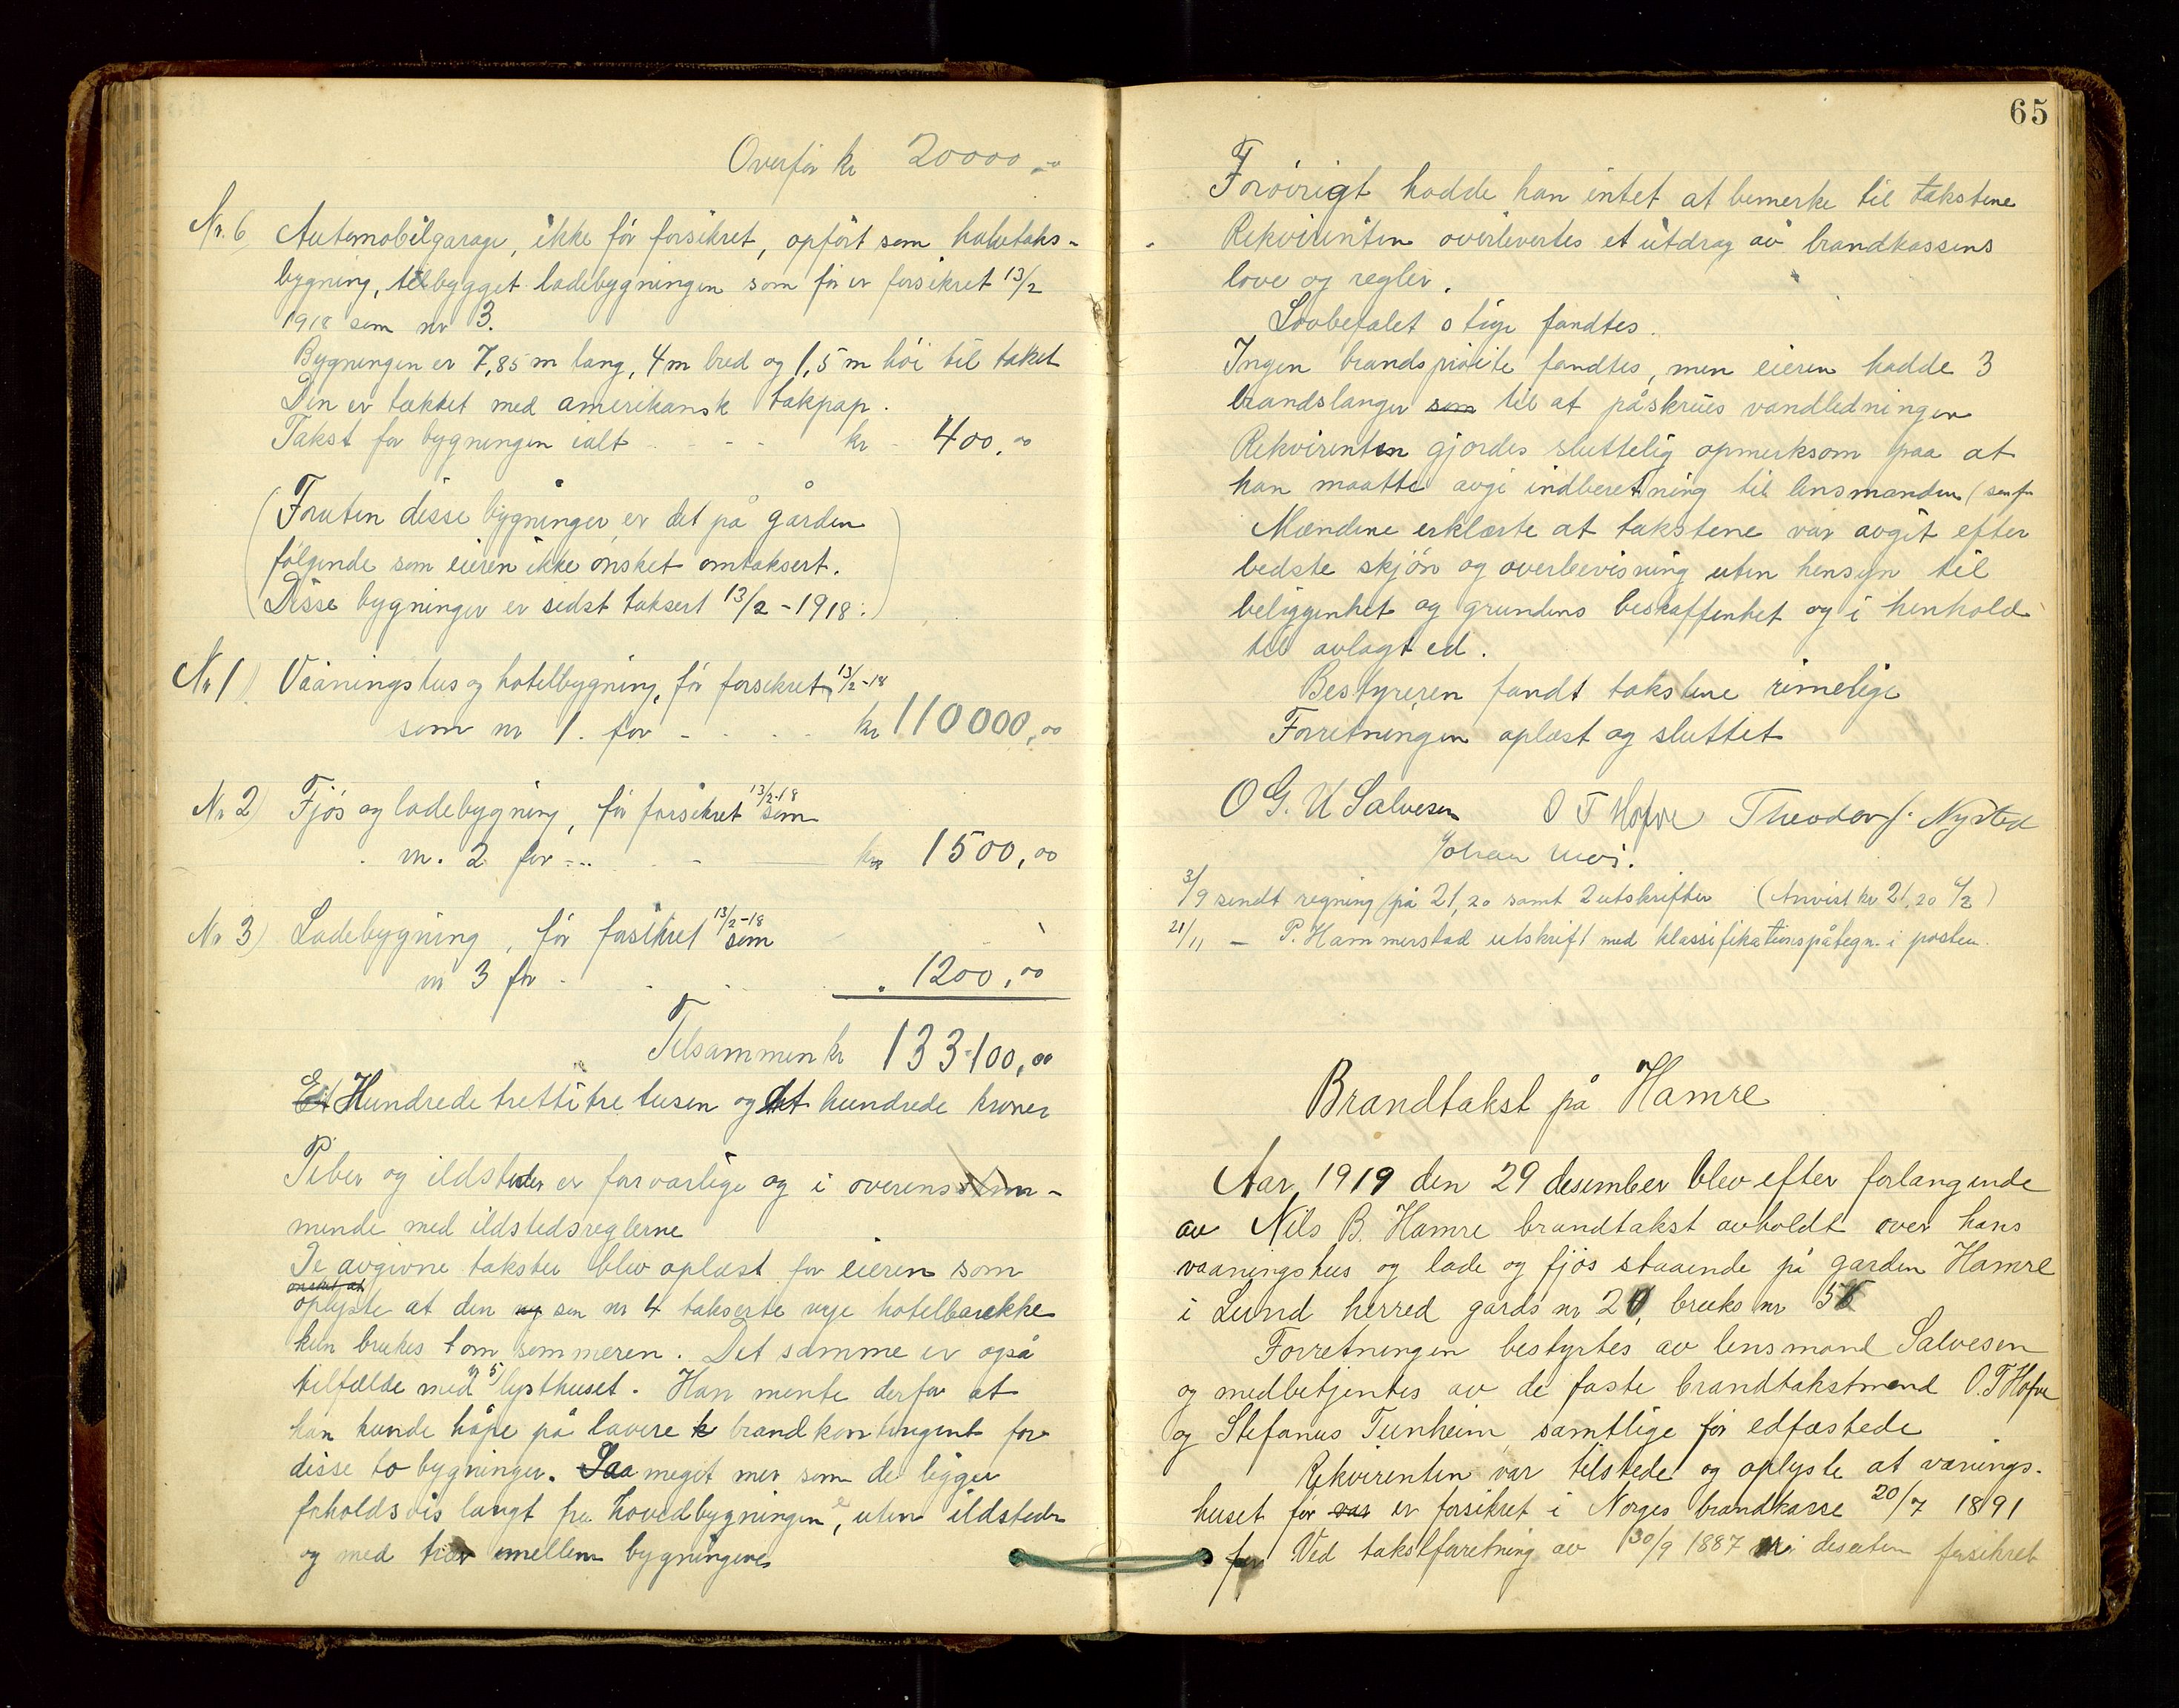 Overfør kr 20000,00
Nr. 6 Automobilgarage, ikke før forsikret, opført som halvtaks-
bygning, tilbygget ladebygningen som før er forsikret 13/2
1918 som nr 3.
Bygningen er 7,85 m lang, 4 m bred og 1,5 m høi til taket
Den er tækket med amerikansk takpap.
Takst for bygningen ialt - - - kr 400,00
(Foruten disse bygninger er det på gården
følgende som eieren ikke ønsket omtaksert.
Disse bygninger er sidst taksert 13/2 - 1918.)
Nr 1) Vååningshus og hotelbygning, før forsikret 13/2-18
som nr 1. for - - - kr 110000,00
Nr 2) Fjøs og ladebygning, før forsikret 13/2-18 som
nr. 2 for - - - kr 1500,00
Nr 3) Ladebygning, før forsikret 13/2-18 som
nr 3 for - - - 1200,00
Tilsammen kr 133100,00
Et Hundrede trettitre tusen og et hundrede kroner
Piber og ildsteder er forsvarlige og i overensstem-
mende med ildstedsreglerne
De avgivne takster blev oplæst for eieren som
ønsket at
oplyste at den som nr 4 takserte nye hotelbarakke
kun brukes om sommeren. Det samme er også
tilfælde med nr 5 lysthuset. Han mente derfor at
han kunde håpe på lavere k brandkontingent for
disse to bygninger. Saa meget mer som de ligger
forholdsvis langt fra hovedbygningen, uten ildsteder
og med trær mellem bygningene
65
Forøvrigt hadde han intet at bemerke til takstene
Rekvirenten overlevertes et utdrag av brandkassens
love og regler.
Lovbefalet stige fandtes.
Ingen brandsprøite fandtes, men eieren hadde 3
brandslanger som til at påskrues vandledningen
Rekvirenten gjordes sluttelig opmerksom paa at
han maatte avgi indberetning til lensmanden
Mændene erklærte at takstene var avgit efter
bedste skjøn og overbevisning uten hensyn til
beliggenhet og grundens beskaffenhet og i henhold
til avlagt ed.
Bestyreren fandt takstene rimelige
Forretningen oplæst og sluttet
O G. U Salvesen O T Hofve Theodor J. Nysted
Johan Moi.
3/9 sendt regning på 21,20 samt 2 utskrifter (Anvist kr 21,20
21/11 - P. Hammerstad utskrift med klassifikationspåtegn. i posten.
Brandtakst på Hamre
Aar 1919 den 29 desember blev efter forlangende
av Nils B. Hamre brandtakst avholdt over hans
vaaningshus og lade og fjøs staaende på garden Hamre
i Lund herred gards nr 20, bruks nr 5
Forretningen bestyrtes av lensmand Salvesen
og medbetjentes av de faste brandtakstmænd O. T Hofve
og Stefanus Tunheim samtlige før edfæstede
Rekvirenten var tilstede og oplyste at vånings-
huset før var er forsikret i Norges brandkasse 20/7 1891
for Ved takstforretning av 30/9 1887 forsikret